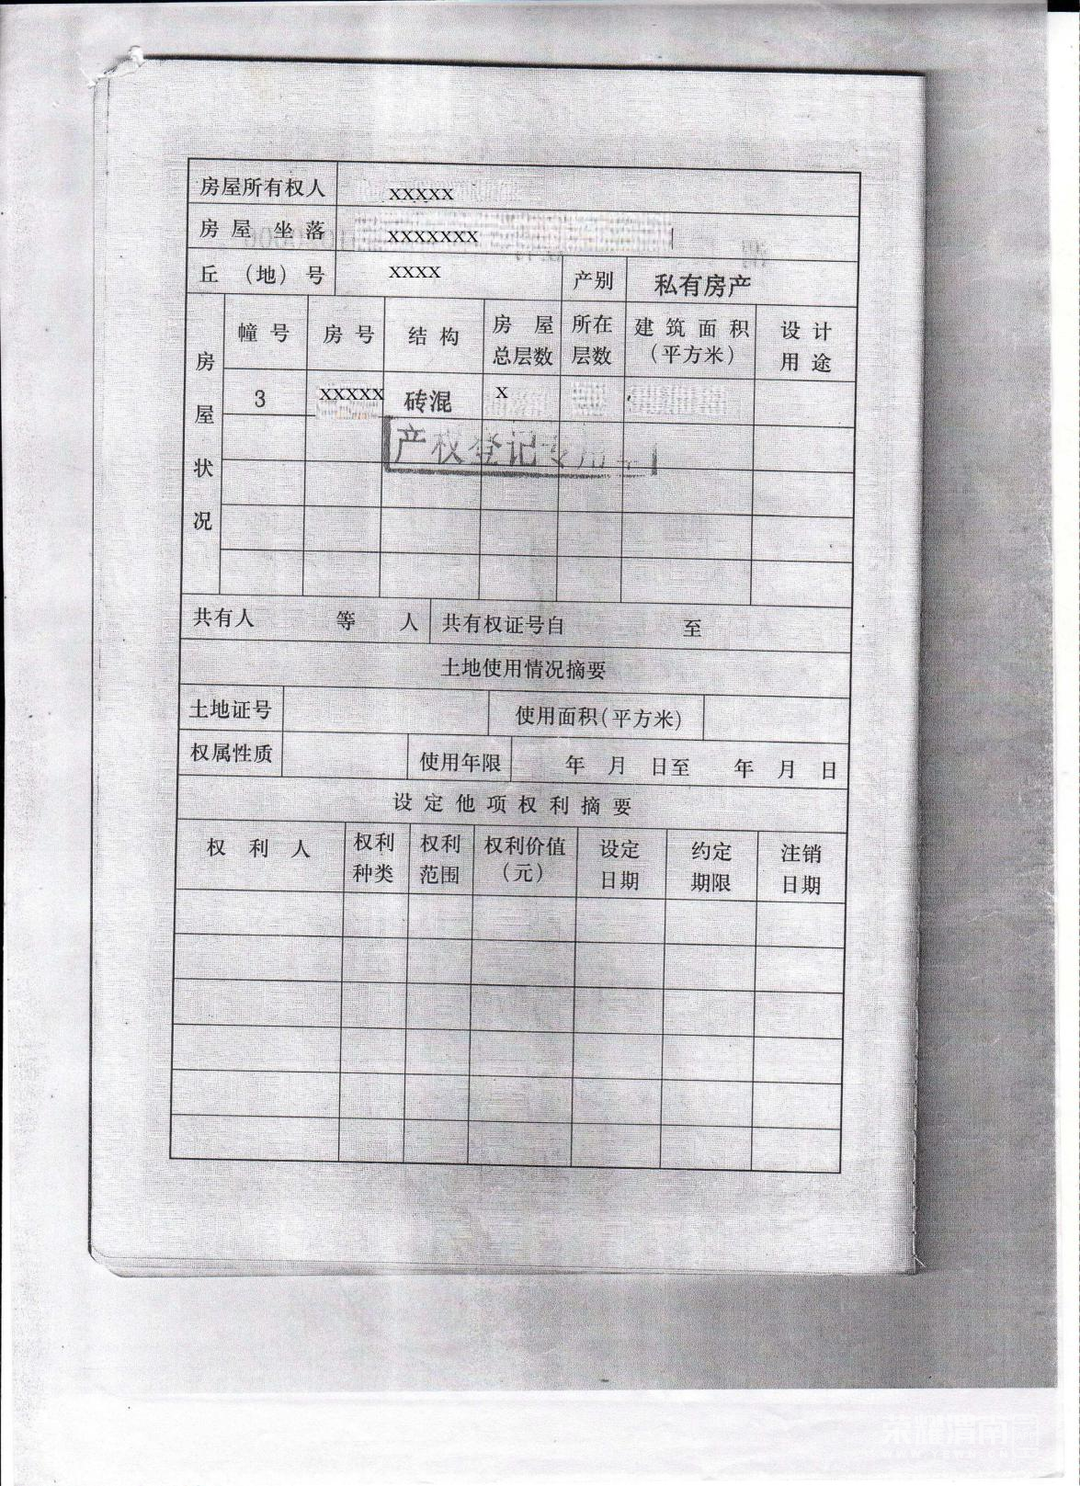 房屋所有权人 XXXXX
房屋坐落 XXXXXXX
丘（地）号 XXXX 产别 私有房产
房屋状况
幢号 房号 结构 房屋总层数 所在层数 建筑面积（平方米） 设计用途
3 XXXXX 砖混 X
产权登记专用章
共有人 等 人 共有权证号自 至
土地使用情况摘要
土地证号 使用面积（平方米）
权属性质 使用年限 年 月 日至 年 月 日
设定他项权利摘要
权利人 权利种类 权利范围 权利价值（元） 设定日期 约定期限 注销日期
荣耀渭南